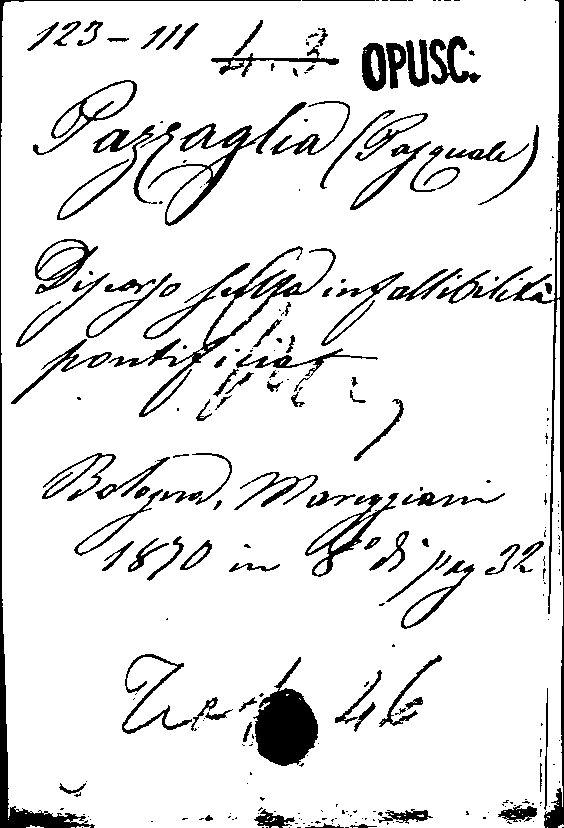 123 - 111 4.3 OPUSC.
Pazzaglia (Pasquale)
Discorso sulla infallibilità
pontificia
Bologna, Mareggiani
1870 in 8° di pag 32
46